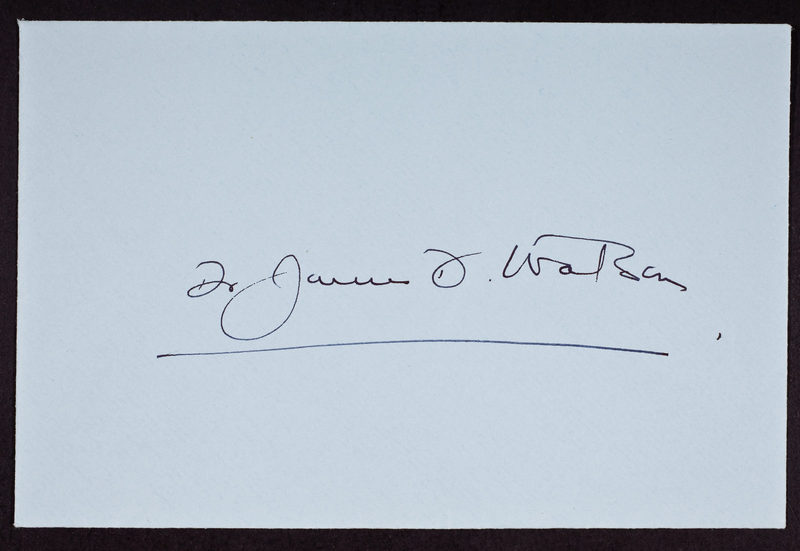 Dr James D. Watson